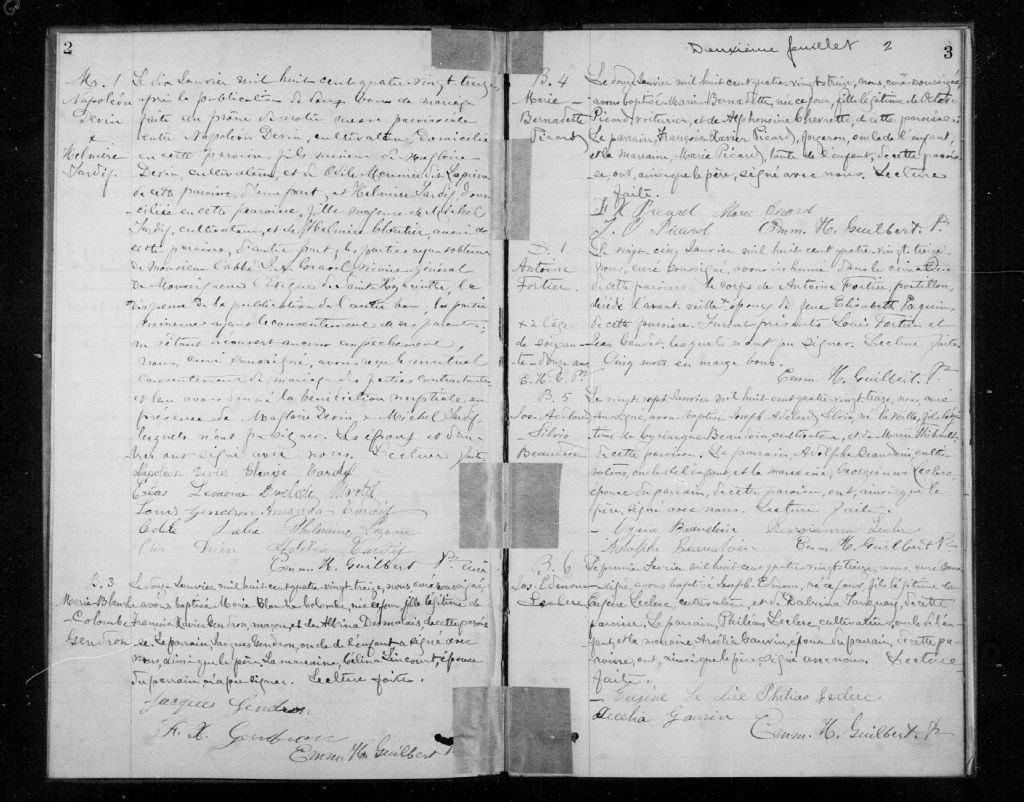 2
M. 1
Napoléon
Devin
&
Helmire
Tardif.
Le dix Janvier mil huit cent quatre vingt treize,
après la publication de deux bans de mariage
faite au prône de notre messe paroissiale
entre Napoléon Devin, cultivateur, domicilié
en cette paroisse, fils mineur de Magloire
Devin, cultivateur, et de Odile Meunier dit Lapierre
de cette paroisse, d'une part, et Helmire Tardif, domi-
-ciliée en cette paroisse, fille majeure de Michel
Tardif, cultivateur, et de Helmire Cloutier, aussi de
cette paroisse, d'autre part; les parties ayant obtenu
de Monsieur l'abbé vicaire général
de Monseigneur l'évêque de Saint Hyacinthe, la
dispense de la publication de l'autre ban, la partie
mineure ayant le consentement de ses parents;
ne s'étant découvert aucun empêchement,
nous, curé soussigné, avons reçu le mutuel
consentement de mariage des parties contractantes
et leur avons donné la bénédiction nuptiale en
présence de Magloire Devin & Michel Tardif
lesquels n'ont pu signer. Les époux et
ont signé avec nous. Lecture faite.
Napoleon Devin
Lemoine
Louis Gendron Amanda Tardif
Odile Philomène
Devin Tardif
Emm. H. Guilbert Ptre curé
B. 3
Marie-Blanche
-Colombe
Gendron
Le douze Janvier mil huit cent quatre vingt treize, nous curé soussigné,
avons baptisé Marie Blanche Colombe, née ce jour, fille légitime de
François Xavier Gendron, maçon, et de Albina Desmarais, de cette parois-
-se. Le parrain, Jacques Gendron, oncle de l'enfant, a signé avec
nous, ainsi que le père. La marraine, Célina Lincourt, épouse
du parrain, n'a pu signer. Lecture faite.
Jacques Gendron
F. X. Gendron
Emm. H. Guilbert Ptre
Deuxième feuillet 2
3
B. 4
Marie-
Bernadette
Picard
Le douze Janvier mil huit cent quatre vingt treize, nous, curé soussigné,
avons baptisé Marie Bernadette, née ce jour, fille légitime de Octave
Picard, voiturier, et de Alphonsine Chevrette, de cette paroisse.
Le parrain, François Xavier Picard, forgeron, oncle de l'enfant,
et la marraine, Marie Picard, tante de l'enfant, de cette parois-
se, ont, ainsi que le père, signé avec nous. Lecture
faite.
F X Picard Marie Picard
J. O Picard Emm. H. Guilbert, Ptre
S. 1
Antoine
Fortier.
+ à l'âge
de soixan-
te-douze ans
E. H. G. Ptre
Le vingt cinq Janvier mil huit cent quatre vingt treize,
nous, curé soussigné, avons inhumé dans le cimetière
de cette paroisse le corps de Antoine Fortier, postillon,
décédé l'avant veille + époux de feue Elisabeth Paquin,
de cette paroisse. Furent présents Louis Fortier et
Jean Gauvet, lesquels n'ont pu signer. Lecture faite.
Cinq mots en marge bons.
Emm. H. Guilbert, Ptre
B. 5
Jos. Adélard
Silvio
Beaudoin
Le vingt sept Janvier mil huit cent quatre vingt treize, nous, curé
soussigné, avons baptisé Joseph Adélard Silvio, né la veille, fils légi-
time de Cyriaque Beaudoin, cultivateur, et de Marie Thibault,
de cette paroisse. Le parrain, Adolphe Beaudoin, culti-
vateur, oncle de l'enfant, et la marraine, Georgeanna Leclerc,
épouse du parrain, de cette paroisse, ont, ainsi que le
père, signé avec nous. Lecture faite.
Beaudoin
Adolphe Beaudoin Emm. H. Guilbert Ptre
B. 6
Jos. Edmond
Leclerc
Le premier Février mil huit cent quatre-vingt-treize, nous, curé sous-
signé avons baptisé Joseph Edmond, né ce jour, fils légitime de
Eugène Leclerc, cultivateur, et de Malvina Tanguay, de cette
paroisse. Le parrain, Philias Leclerc cultivateur, oncle de l'en-
fant, et la marraine, Gauvin, épouse du parrain, de cette pa-
roisse, ont, ainsi que le père signé avec nous. Lecture
faite.
Eugène Philias Leclerc
Gauvin
Emm. H. Guilbert. Ptre